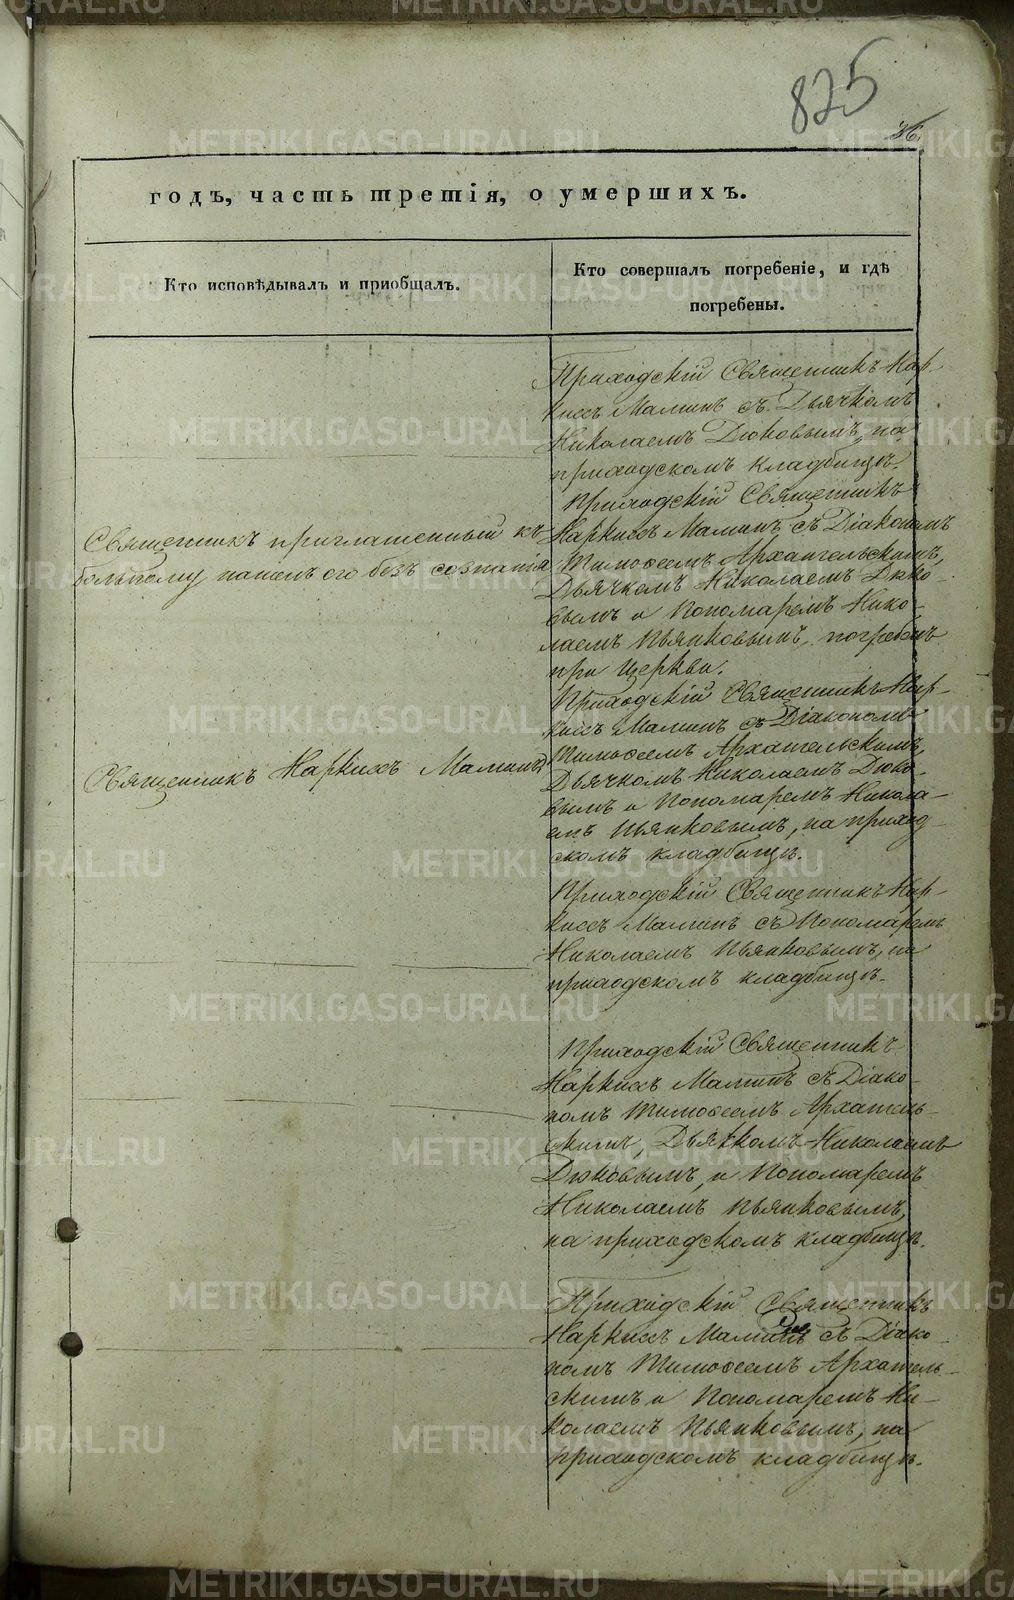 825
годъ, часть третія, о умершихъ.
Кто исповѣдывалъ и приобщалъ.
Кто совершалъ погребеніе, и гдѣ
погребены.
Приходскій Священникъ Нар-
киссъ Маминъ съ Дьячкомъ
Николаемъ Дюковымъ, на
приходскомъ кладбищѣ.
Священникъ приглашенный къ
больному нашелъ его безъ сознанія
Приходскій Священникъ
Наркиссъ Маминъ съ Діакономъ
Тимофеемъ Архангельскимъ,
Дьячкомъ Николаемъ Дюко-
вымъ и Пономаремъ Нико-
лаемъ Пьянковымъ, погребенъ
при Церкви.
Священникъ Наркиссъ Маминъ
Приходскій Священникъ Нар-
киссъ Маминъ съ Діакономъ
Тимофеемъ Архангельскимъ,
Дьячкомъ Николаемъ Дюко-
вымъ и Пономаремъ Никола-
емъ Пьянковымъ, на приход-
скомъ кладбищѣ.
Приходскій Священникъ Нар-
киссъ Маминъ съ Пономаремъ
Николаемъ Пьянковымъ, на
приходскомъ кладбищѣ.
Приходскій Священникъ
Наркиссъ Маминъ съ Діако-
номъ Тимофеемъ Архангель-
скимъ, Дьячкомъ Николаемъ
Дюковымъ, и Пономаремъ
Николаемъ Пьянковымъ,
на приходскомъ кладбищѣ.
Приходскій Священникъ
Наркиссъ Маминъ съ Діако-
номъ Тимофеемъ Архангель-
скимъ и Пономаремъ Ни-
колаемъ Пьянковымъ, на
приходскомъ кладбищѣ.
METRIKI.GASO-URAL.RU